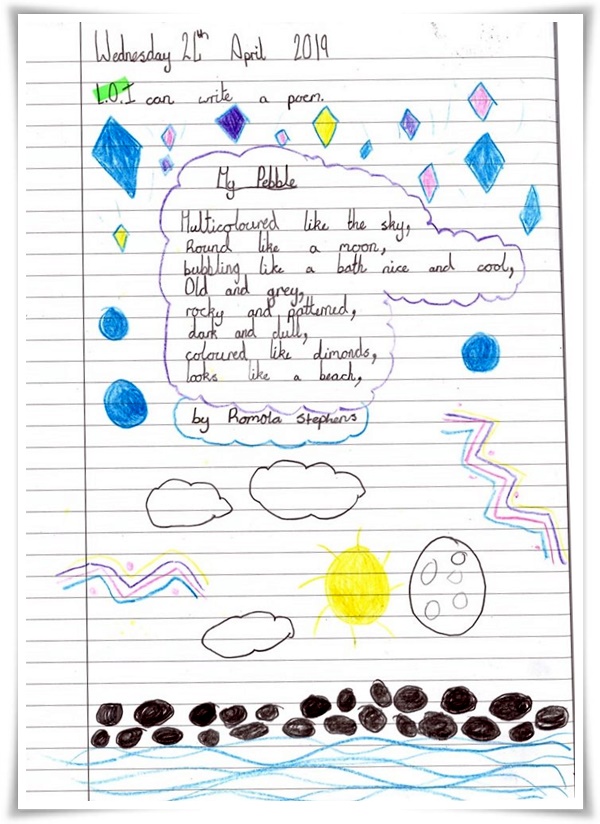 Wednesday 24th April 2019
L.O.I can write a poem.
My Pebble
Multicoloured like the sky,
Round like a moon,
bubbling like a bath nice and cool,
Old and grey,
rocky and patterned,
dark and dull,
coloured like dimonds,
looks like a beach,
by Romola Stephens